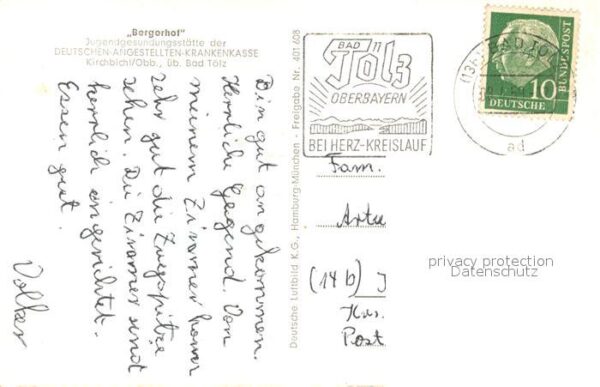 „Bergerhof"
Jugendgesundungsstätte der
DEUTSCHEN-ANGESTELLTEN-KRANKENKASSE
Kirchbichl/Obb., üb. Bad Tölz
Bin gut angekommen.
Herrliche Gegend. Von
meinem Zimmer kann
sehr gut die Zugspitze
sehen. Die Zimmer sind
herrlich eingerichtet.
Essen gut.
Volker
Deutsche Luftbild K.G., Hamburg-München - Freigabe Nr. 401 608
BAD
Tölz
OBERBAYERN
BEI HERZ-KREISLAUF
BAD TÖ
ad
DEUTSCHE
BUNDESPOST
10
Fam.
(14b)
Post
privacy protection
Datenschutz